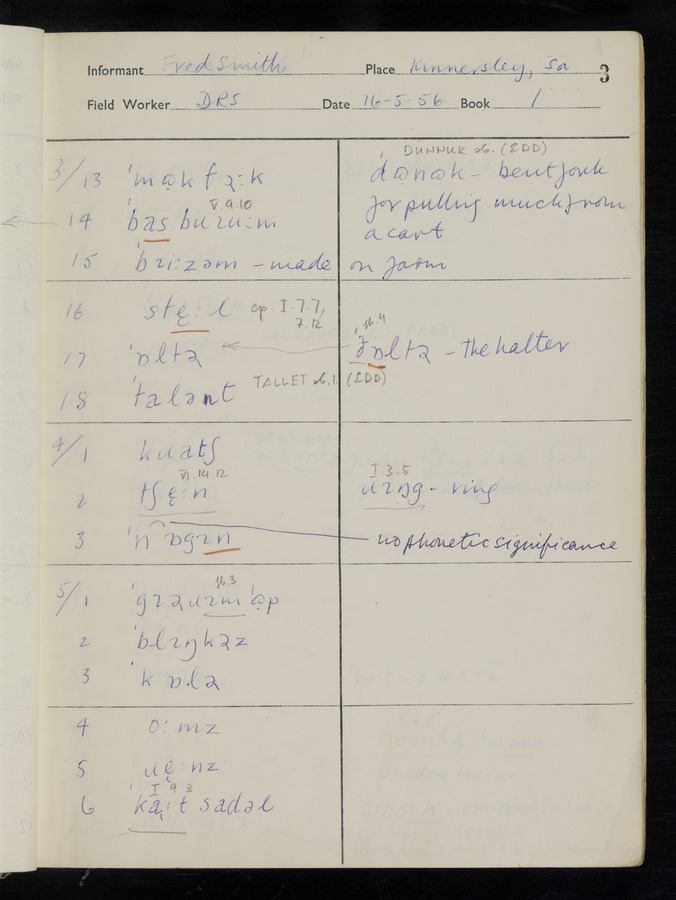 Informant Fred Smith Place Kinnersley, Sa 3
Field Worker DRS Date 16-5-56 Book 1
DUNNUK sb. (EDD)
3/13 ˈmǝkfɔːk dǝnǝk - bent fork
for pulling muck from
V.9.10
14 ˈbas bɹuːm a cart
15 ˈbɹiːzəm - made on farm
16 stęːl cp. I.7.7,
7.12
sh.4
17 ˈɒltə ðɒltə - the halter
18 ˈtalənt TALLET sb.1. (EDD)
4/1 kɹatʃ
VI.14.12 I.3.5
2 tʃęːn ɹɪŋg - ring
3 ˈnɒgɪn no phonetic significance
sh.3
5/1 ˈgɹəuɪmˈəp
2 ˈblɪŋkəz
3 ˈkɒlə
4 oːmz
5 ɹęːnz
I 9 3
6 ˈkaːt sadəl